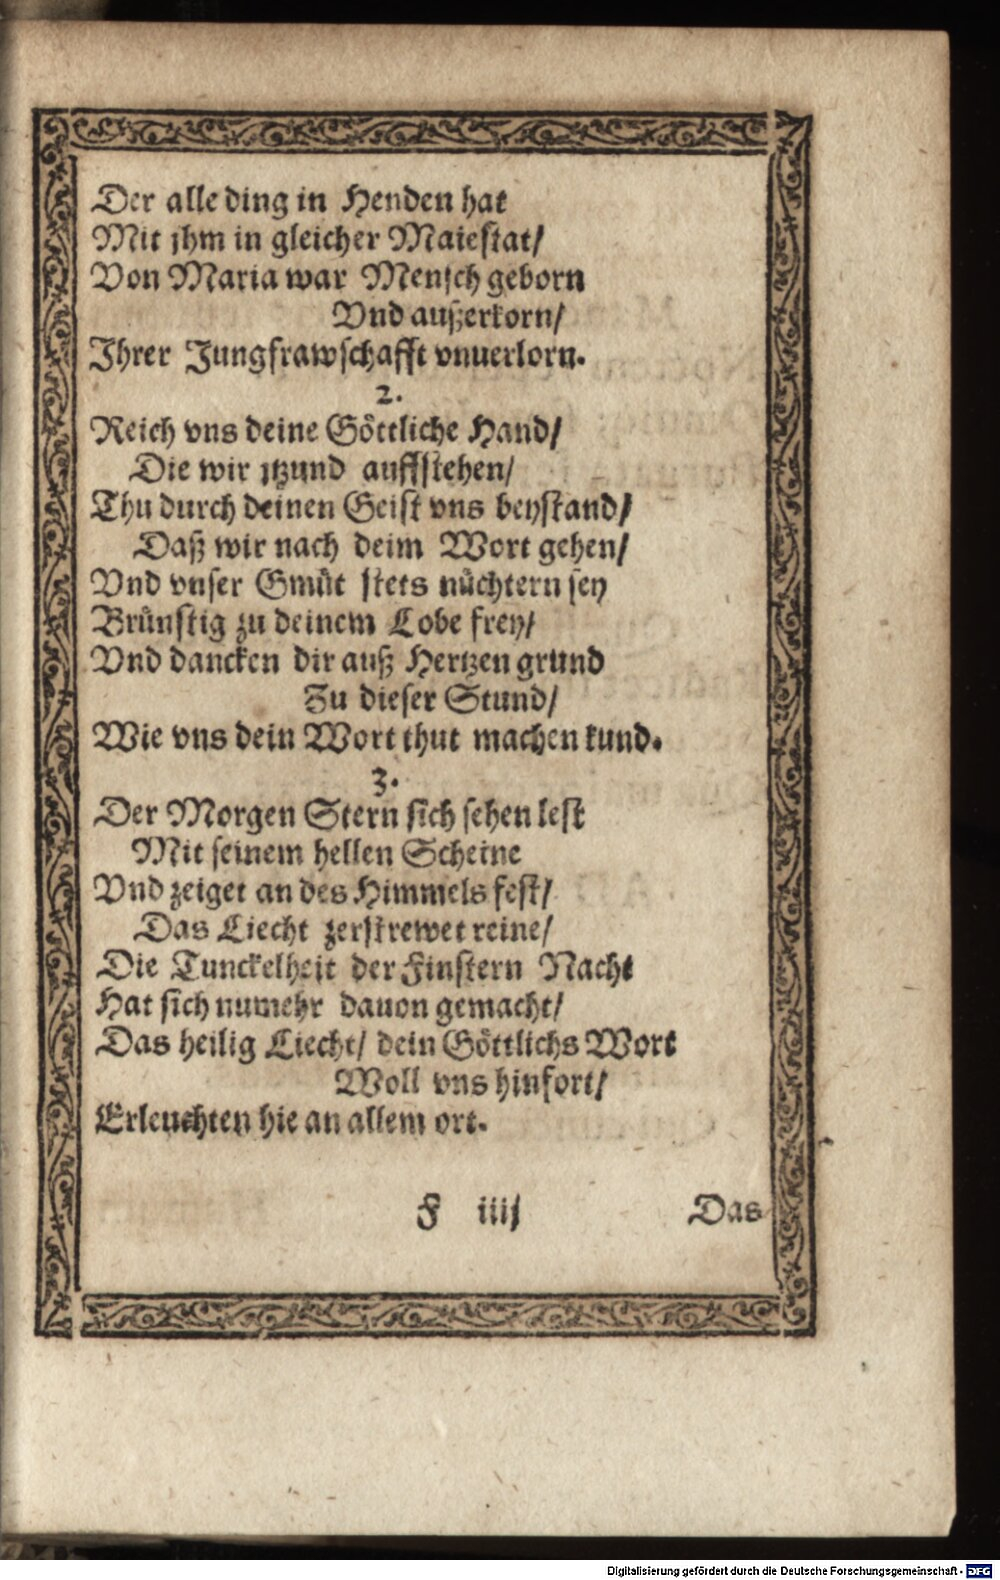 Der alle ding in Henden hat
Mit jhm in gleicher Maiestat/
Von Maria war Mensch geborn
Vnd außerkorn/
Jhrer Jungfrawschafft vnuerlorn.
2.
Reich vns deine Göttliche Hand/
Die wir jtzund auffstehen/
Thu durch deinen Geist vns beystand/
Daß wir nach deim Wort gehen/
Vnd vnser Gmüt stets nüchtern sey
Brünstig zu deinem Lobe frey/
Vnd dancken dir auß Hertzen grund
Zu dieser Stund/
Wie vns dein Wort thut machen kund.
3.
Der Morgen Stern sich sehen lest
Mit seinem hellen Scheine
Vnd zeiget an des Himmels fest/
Das Liecht zerstrewet reine/
Die Tunckelheit der Finstern Nacht
Hat sich numehr dauon gemacht/
Das heilig Liecht/ dein Göttlichs Wort
Woll vns hinfort/
Erleuchten hie an allem ort.
F iiij Das
Digitalisierung gefördert durch die Deutsche Forschungsgemeinschaft - DFG